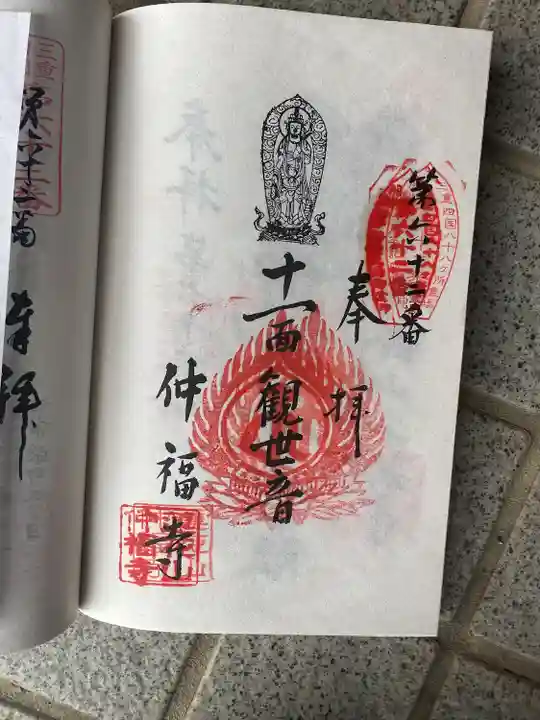 三重四国八十八ヶ所
第六十二番
奉拝
十一面観世音
仲福寺
仲福寺
三重
第六十二番
奉拝